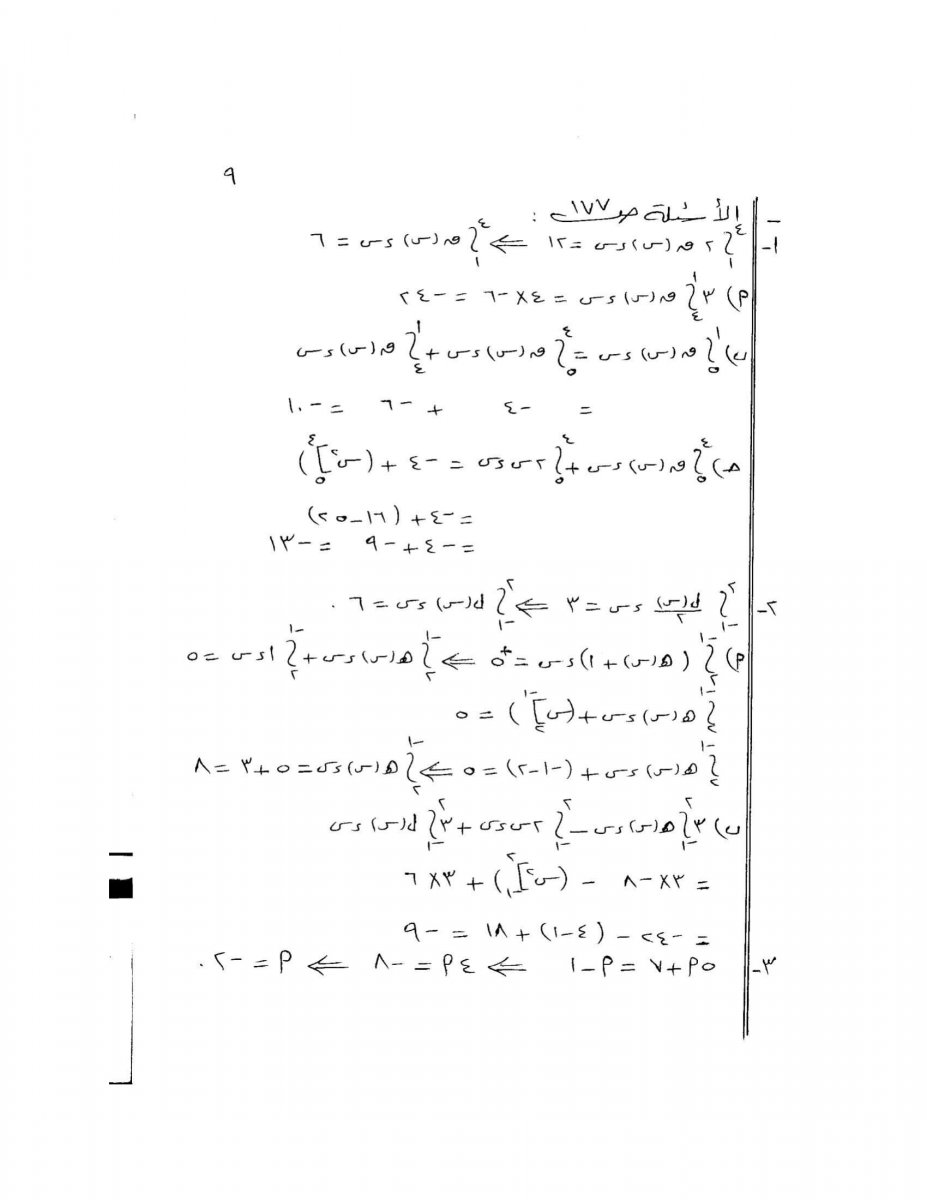 ٩
- الأسئلة ص ١٧٧ :
١- ∫₁^٤ ٢ ق(س) ء س = ١٢ ⇐ ∫₁^٤ ق(س) ء س = ٦
م) ٣ ∫₄^١ ق(س) ء س = ٤ × -٦ = -٢٤
ب) ∫₅^١ ق(س) ء س = ∫₅^٤ ق(س) ء س + ∫₄^١ ق(س) ء س
= -٤ + -٦ = -١٠
هـ) ∫₅^٤ ق(س) ء س + ∫₅^٤ ٢س ء س = -٤ + (س²]₅^٤)
= -٤ + (١٦ - ٢٥)
= -٤ + -٩ = -١٣
٢- ∫₋₁^٢ ل(س)/٢ ء س = ٣ ⇐ ∫₋₁^٢ ل(س) ء س = ٦ .
م) ∫₂^-١ (هـ(س) + ١) ء س = +٥ ⇐ ∫₂^-١ هـ(س) ء س + ∫₂^-١ ١ ء س = ٥
∫₂^-١ هـ(س) ء س + (س]₂^-١) = ٥
∫₂^-١ هـ(س) ء س + (-١-٢) = ٥ ⇐ ∫₂^-١ هـ(س) ء س = ٥ + ٣ = ٨
ب) ٣ ∫₋₁^٢ هـ(س) ء س - ∫₋₁^٢ ٢س ء س + ٣ ∫₋₁^٢ ل(س) ء س
= ٣ × -٨ - (س²]₋₁^٢) + ٣ × ٦
= -٢٤ - (٤-١) + ١٨ = -٩
٣- ٥م + ٧ = م - ١ ⇐ ٤م = -٨ ⇐ م = -٢ .